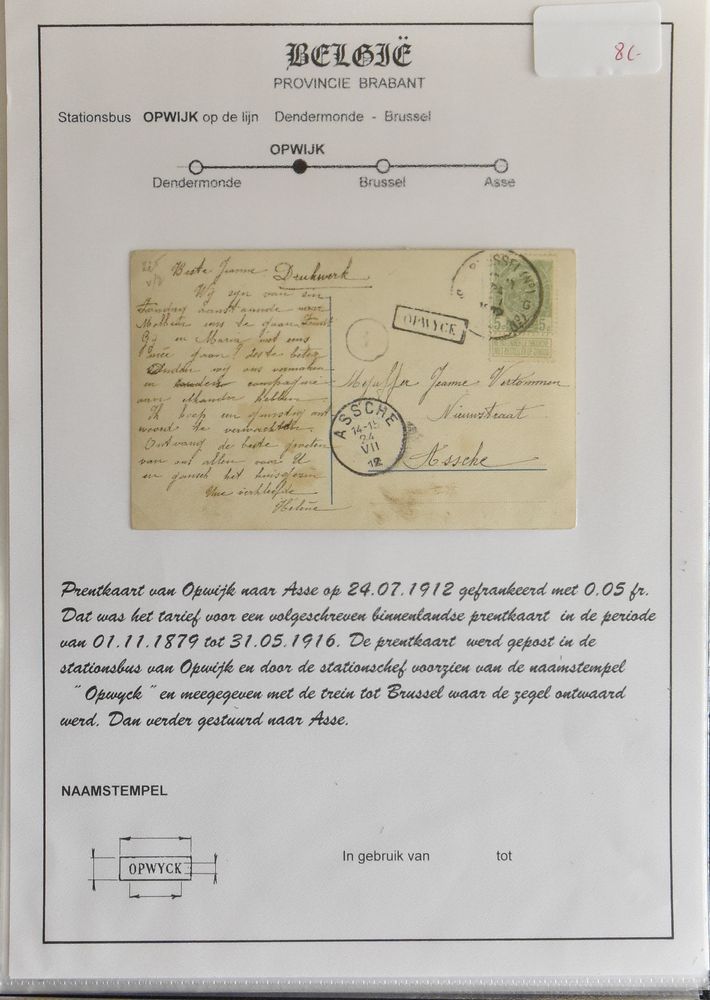 BELGIË
8(-
PROVINCIE BRABANT
Stationsbus OPWIJK op de lijn Dendermonde - Brussel
OPWIJK
Dendermonde Brussel Asse
Beste Jeanne Drukwerk
Wij zijn van zin
Zondag aanstaande naar
te gaan
Gij en Maria met ons
mee gaan?
wij ons vermaken
en
aan elkander hebben
Ik hoop een gunstig ant
woord te verwachten.
Ontvang de beste groeten
van ons allen voor U
en gansch het huisgezin
Uwe
Helène
OPWYCK
Mejuffer Jeanne Vertommen
Nieuwstraat
Assche
ASSCHE
14-15
24
VII
12
Prentkaart van Opwijk naar Asse op 24.07.1912 gefrankeerd met 0.05 fr.
Dat was het tarief voor een volgeschreven binnenlandse prentkaart in de periode
van 01.11.1879 tot 31.05.1916. De prentkaart werd gepost in de
stationsbus van Opwijk en door de stationschef voorzien van de naamstempel
" Opwyck " en meegegeven met de trein tot Brussel waar de zegel ontwaard
werd. Dan verder gestuurd naar Asse.
NAAMSTEMPEL
OPWYCK
In gebruik van tot